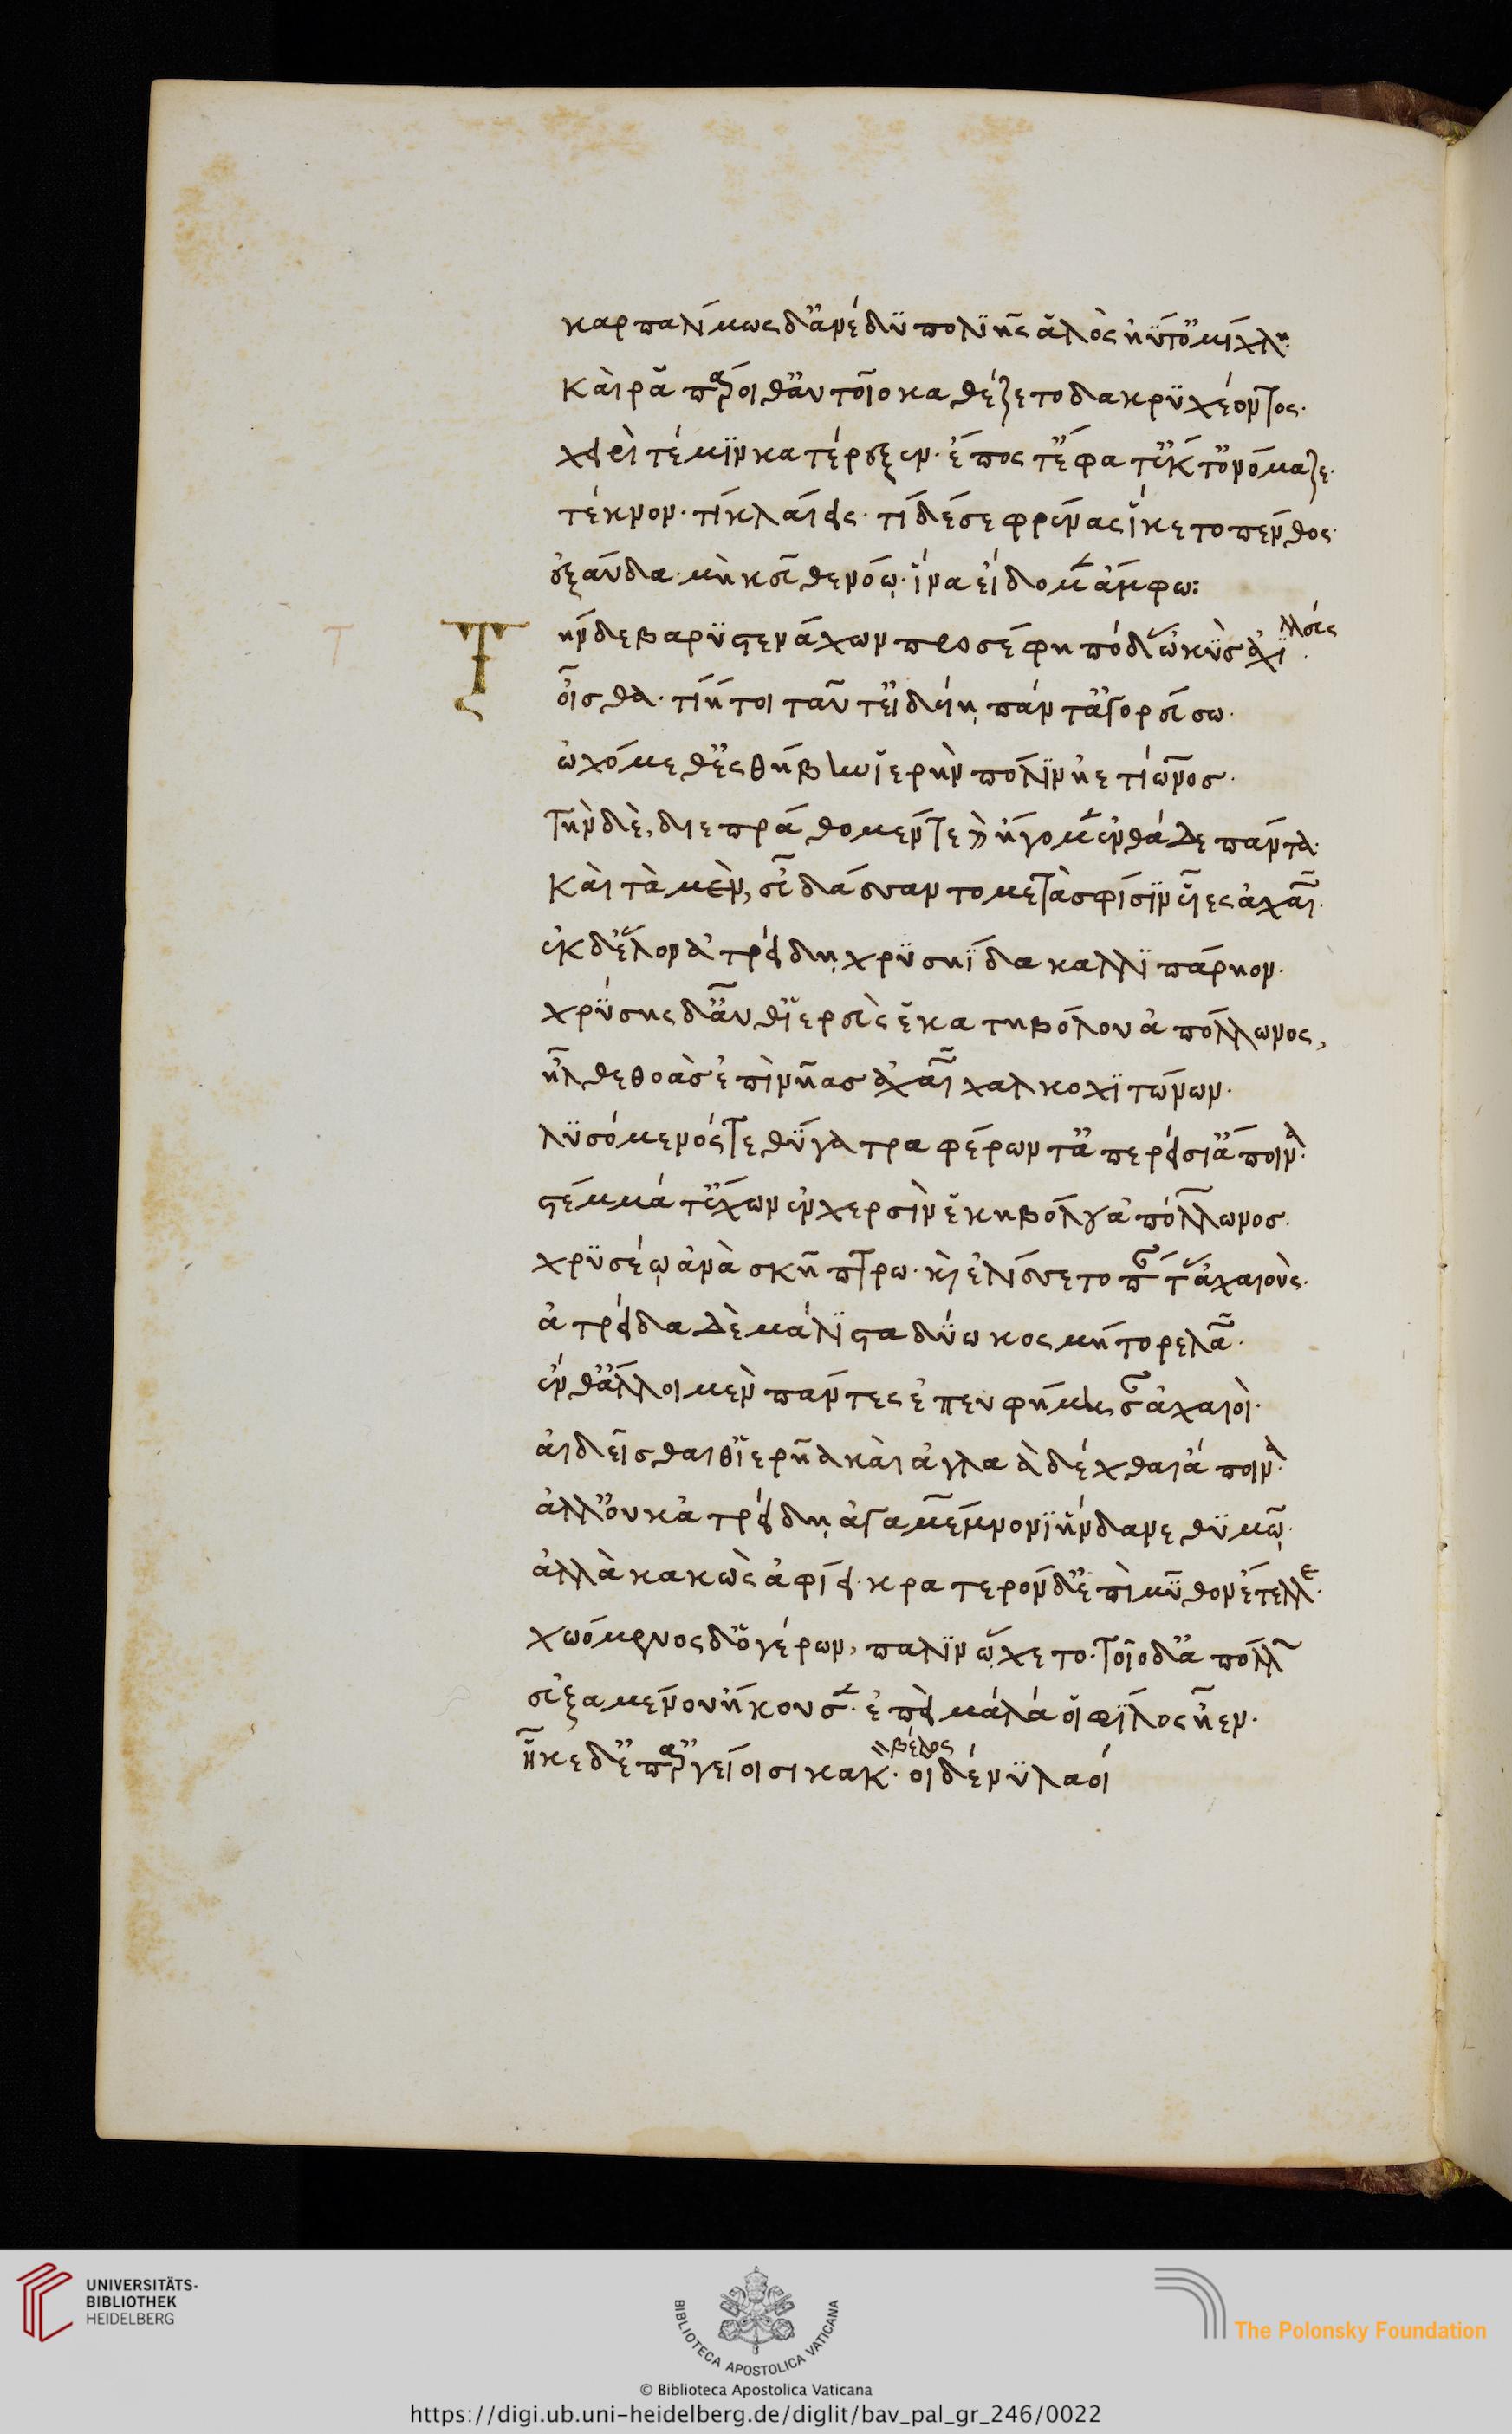 καρπαλίμως δ' ἀνέδυ πολιῆς ἁλὸς ἠΰτ' ὀμίχλη.
καὶ ῥα πάροιθ' αὐτοῖο καθέζετο δακρυχέοντος.
χειρί τέ μιν κατέρεξεν. ἔπος τ' ἔφατ' ἔκ τ' ὀνόμαζε.
τέκνον. τί κλαίεις. τί δέ σε φρένας ἵκετο πένθος.
ἐξαύδα. μὴ κεῦθε νόῳ. ἵνα εἴδομεν ἄμφω:
Τὴν δὲ βαρυστενάχων προσέφη πόδας ὠκὺς ἀχιλλεύς.
οἶσθα. τίη τοι ταῦτ' εἰδυίῃ πάντ' ἀγορεύσω.
ὠχόμεθ' ἐς θήβην ἱερὴν πόλιν ἠετίωνος.
τὴν δὲ, διεπράθομέν τε καὶ ἤγομεν ἐνθάδε πάντα.
καὶ τὰ μὲν, εὖ δάσσαντο μετὰ σφίσιν υἷες ἀχαιῶν.
ἐκ δ' ἕλον ἀτρείδῃ χρυσηΐδα καλλιπάρηον.
χρύσης δ' αὖθ' ἱερεὺς ἑκατηβόλου ἀπόλλωνος,
ἦλθε θοὰς ἐπὶ νῆας ἀχαιῶν χαλκοχιτώνων.
λυσόμενός τε θύγατρα φέρων τ' ἀπερείσι' ἄποινα.
στέμμά τ' ἔχων ἐν χερσὶν ἑκηβόλου ἀπόλλωνος.
χρυσέῳ ἀνὰ σκήπτρω. καὶ ἐλίσσετο πάντας ἀχαιούς.
ἀτρείδα δὲ μάλιστα δύω κοσμήτορε λαῶν.
ἔνθ' ἄλλοι μὲν πάντες ἐπευφήμησαν ἀχαιοί.
αἰδεῖσθαι θ' ἱερῆα καὶ ἀγλαὰ δέχθαι ἄποινα.
ἀλλ' οὐκ ἀτρείδῃ ἀγαμέμνονι ἥνδανε θυμῷ.
ἀλλὰ κακῶς ἀφίει. κρατερὸν δ' ἐπὶ μῦθον ἔτελλε.
χωόμενος δ' ὁ γέρων, πάλιν ᾤχετο. τοῖο δ' ἀπόλλων
εὐξαμένου ἤκουσεν. ἐπεὶ μάλά οἱ φίλος ἦεν.
ἧκε δ' ἐπ' ἀργείοισι κακὸν βέλος. οἱ δέ νυ λαοί
T
UNIVERSITÄTS-
BIBLIOTHEK
HEIDELBERG
BIBLIOTECA APOSTOLICA VATICANA
The Polonsky Foundation
© Biblioteca Apostolica Vaticana
https://digi.ub.uni-heidelberg.de/diglit/bav_pal_gr_246/0022